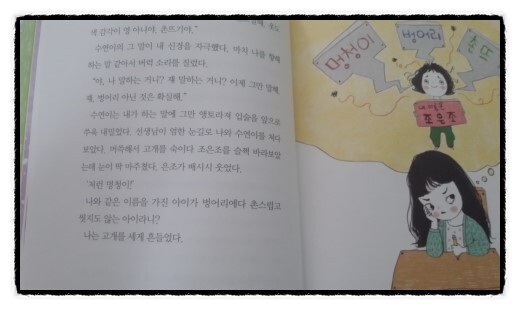 색 감각이 영 아니야. 촌뜨기야."
수연이의 그 말이 내 신경을 자극했다. 마치 나를 향해
하는 말 같아서 버럭 소리를 질렀다.
"야, 나 말하는 거니? 쟤 말하는 거니? 이제 그만 말해.
쟤, 벙어리 아닌 것은 확실해."
수연이는 내가 하는 말에 그만 앵토라져 입술을 앞으로
쭈욱 내밀었다. 선생님이 엄한 눈길로 나와 수연이를 쳐다
보았다. 머쓱해서 고개를 숙이다 조은조를 슬쩍 바라보았
는데 눈이 딱 마주쳤다. 은조가 배시시 웃었다.
'저런 멍청이!'
나와 같은 이름을 가진 아이가 벙어리에다 촌스럽고
씻지도 않는 아이라니?
나는 고개를 세게 흔들었다.
멍청이
벙어리
촌뜨
조은조